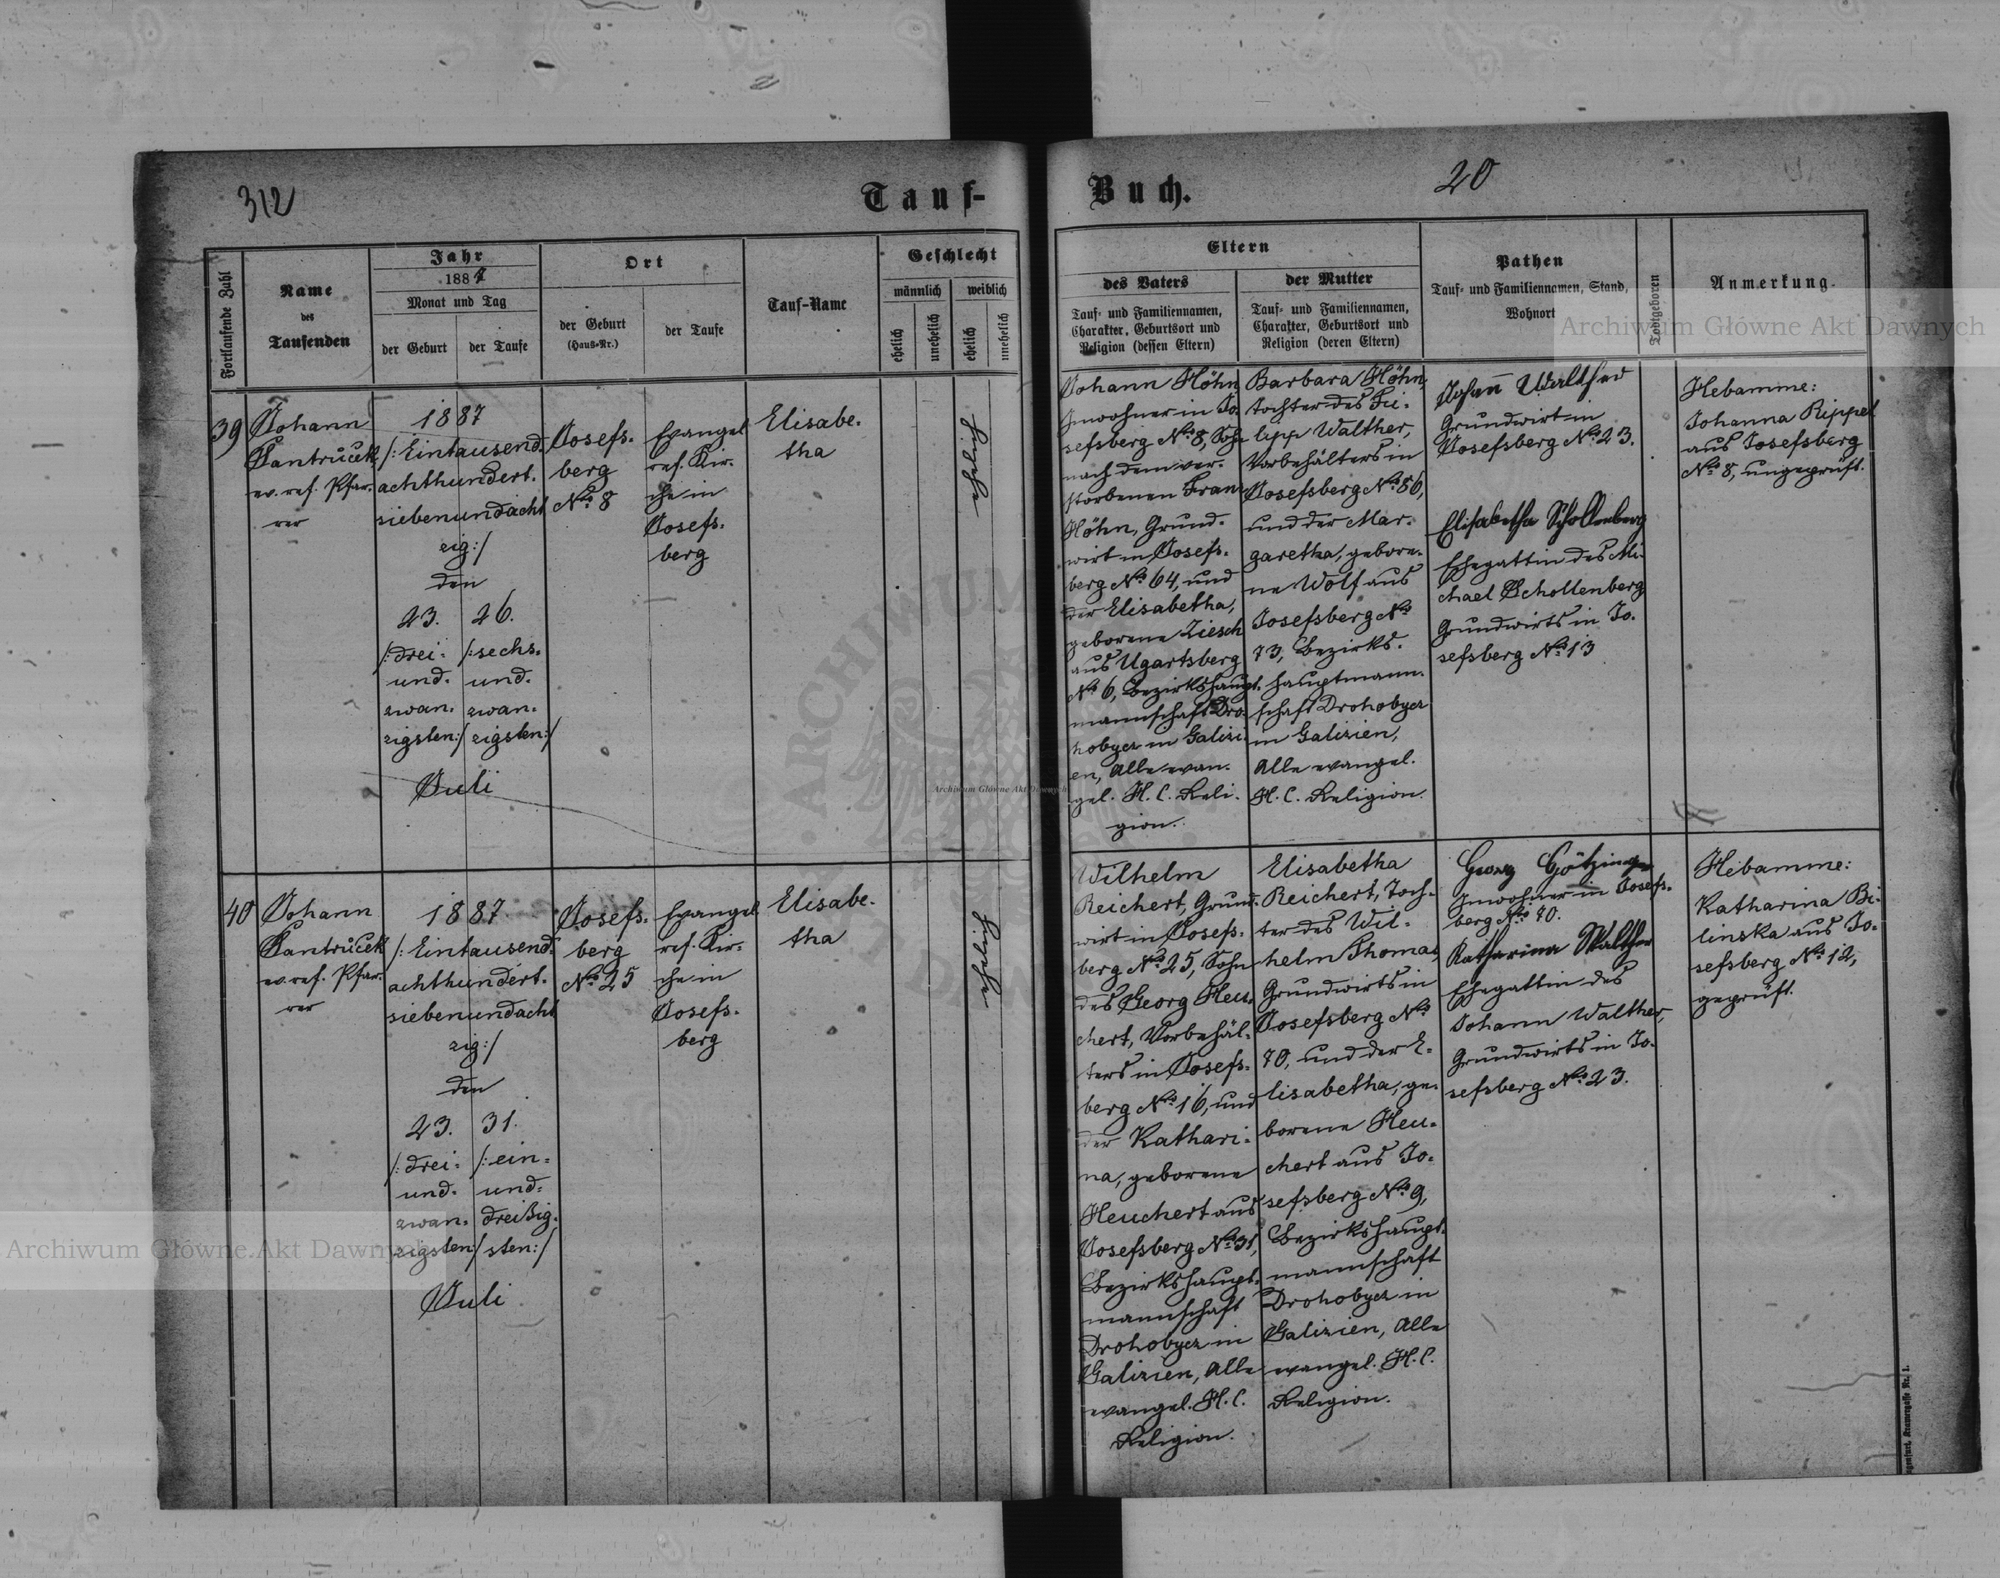 312
Tauf-
Buch.
20
Fortlaufende Zahl
Name
des
Taufenden
Jahr
1887
Monat und Tag
der Geburt
der Taufe
Ort
der Geburt
(Haus-Nr.)
der Taufe
Tauf-Name
Geschlecht
männlich
weiblich
ehelich
unehelich
ehelich
unehelich
Eltern
des Vaters
Tauf- und Familiennamen,
Charakter, Geburtsort und
Religion (dessen Eltern)
der Mutter
Tauf- und Familiennamen,
Charakter, Geburtsort und
Religion (deren Eltern)
Pathen
Tauf- und Familiennamen, Stand,
Wohnort
Todtgeboren
Anmerkung.
Archiwum Główne Akt Dawnych
39
Johann
Jantrůček
ev. ref. Pfar-
rer
1887
/: Eintausend-
achthundert-
siebenundacht
zig :/
den
23.
/: drei-
und-
zwan-
zigsten :/
26.
/: sechs-
und-
zwan-
zigsten :/
Juli
Josefs-
berg
No. 8
Evangel
ref. Kir-
che in
Josefs-
berg
Elisabe-
tha
ehelich
Johann Höhn
Inwohner in Jo-
sefsberg No. 8, Sohn
nach dem ver-
storbenen Franz
Höhn, Grund-
wirt in Josefs-
berg No. 64, und
der Elisabetha,
geborene Ziesch
aus Ugartsberg
No. 6, Bezirkshaupt-
mannschaft Dro-
hobycz in Galizi-
en, Alle evan-
gel. H. C. Reli-
gion.
Barbara Höhn,
Tochter des Fi-
lipp Walther,
Vorbehälters in
Josefsberg No. 56,
und der Mar-
garetha, gebore-
ne Wolf aus
Josefsberg No.
73, Bezirks-
hauptmann-
schaft Drohobycz
in Galizien,
Alle evangel.
H. C. Religion.
Johann Walther
Grundwirt in
Josefsberg No. 23.
Elisabetha Schollenberg
Ehegattin des Mi-
chael Schollenberg
Grundwirts in Jo-
sefsberg No. 13
Hebamme:
Johanna Rippel
aus Josefsberg
No. 8, ungeprüft.
ARCHIWUM
Archiwum Główne Akt Dawnych
40
Johann
Jantrůček
ev. ref. Pfar-
rer
1887
/: Eintausend-
achthundert-
siebenundacht
zig :/
den
23.
/: drei-
und-
zwan-
zigsten :/
31.
/: ein-
und-
dreißig-
sten :/
Juli
Josefs-
berg
No. 25
Evangel
ref. Kir-
che in
Josefs-
berg
Elisabe-
tha
ehelich
Wilhelm
Reichert, Grund-
wirt in Josefs-
berg No. 25, Sohn
des Georg Heu-
chert, Vorbehäl-
ters in Josefs-
berg No. 16, und
der Kathari-
na, geborene
Heuchert aus
Josefsberg No. 31,
Bezirkshaupt-
mannschaft
Drohobycz in
Galizien, Alle
evangel. H. C.
Religion.
Elisabetha
Reichert, Toch-
ter des Wil-
helm Thomas
Grundwirts in
Josefsberg No.
70, und der E-
lisabetha, ge-
borene Heu-
chert aus Jo-
sefsberg No. 9,
Bezirkshaupt-
mannschaft
Drohobycz in
Galizien, Alle
evangel. H. C.
Religion.
Georg Götzinger
Inwohner in Josefs-
berg No. 70.
Katharina Walther
Ehegattin des
Johann Walther,
Grundwirts in Jo-
sefsberg No. 23.
Hebamme:
Katharina Bi-
linska aus Jo-
sefsberg No. 12,
geprüft.
Archiwum Główne Akt Dawnych